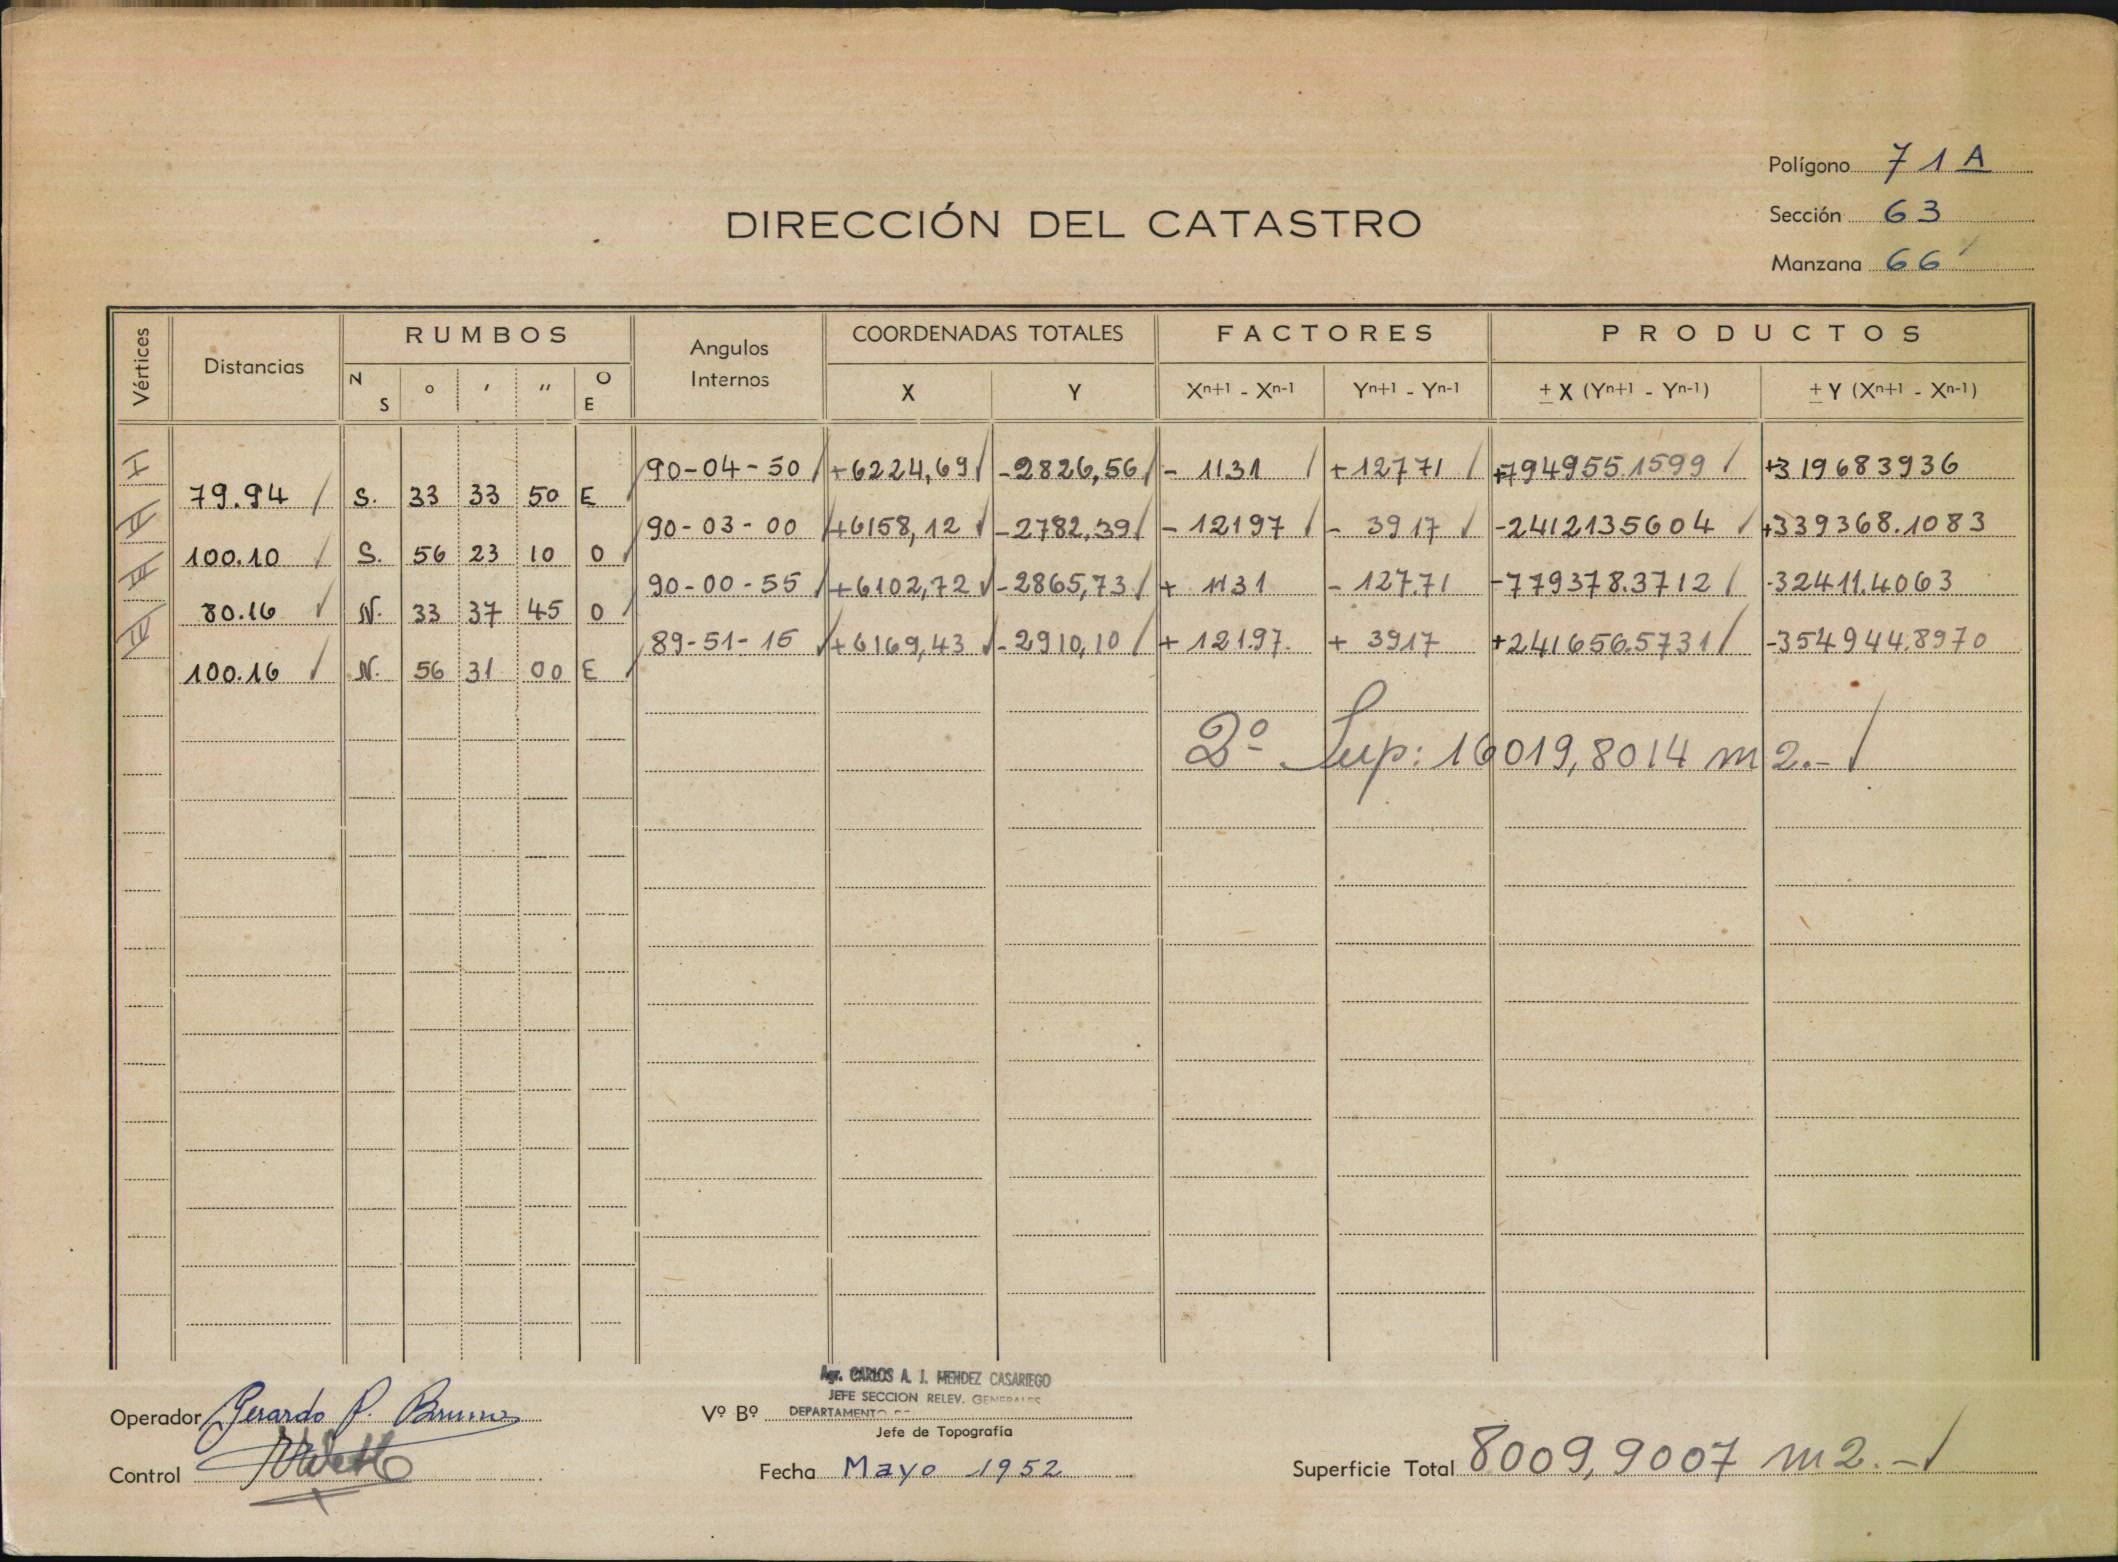 Polígono 71 A
DIRECCIÓN DEL CATASTRO
Sección 63
Manzana 66
Vértices Distancias RUMBOS Angulos Internos COORDENADAS TOTALES FACTORES PRODUCTOS
N S ° ' " O E X Y Xn+1 - Xn-1 Yn+1 - Yn-1 ± X (Yn+1 - Yn-1) ± Y (Xn+1 - Xn-1)
I 90-04-50 +6224,69 -2826,56 - 1131 +12771 +794955.1599 +319683936
79.94 S. 33 33 50 E
II 90-03-00 +6158,12 -2782,39 - 12197 - 3917 -2412135604 +339368.1083
100.10 S. 56 23 10 O
III 90-00-55 +6102,72 -2865,73 + 1131 - 127.71 -779378.3712 -32411.4063
80.16 N. 33 37 45 O
IV 89-51-15 +6169,43 -2910,10 + 121.97. + 3917 +241656.5731 -354944.8970
100.16 N. 56 31 00 E
2º Sup: 16019,8014 m2.-
Agr. CARLOS A. J. MENDEZ CASARIEGO
JEFE SECCION RELEV. GENERALES
Operador Gerardo P. Bruno Vº Bº DEPARTAMENTO DE
Jefe de Topografía
Control Fecha Mayo 1952 Superficie Total 8009,9007 m2.-